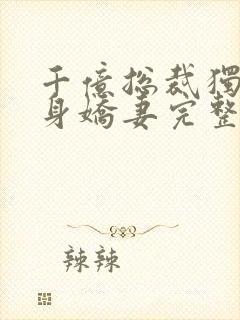 千億総裁獨
身嬌妻完整
辣辣